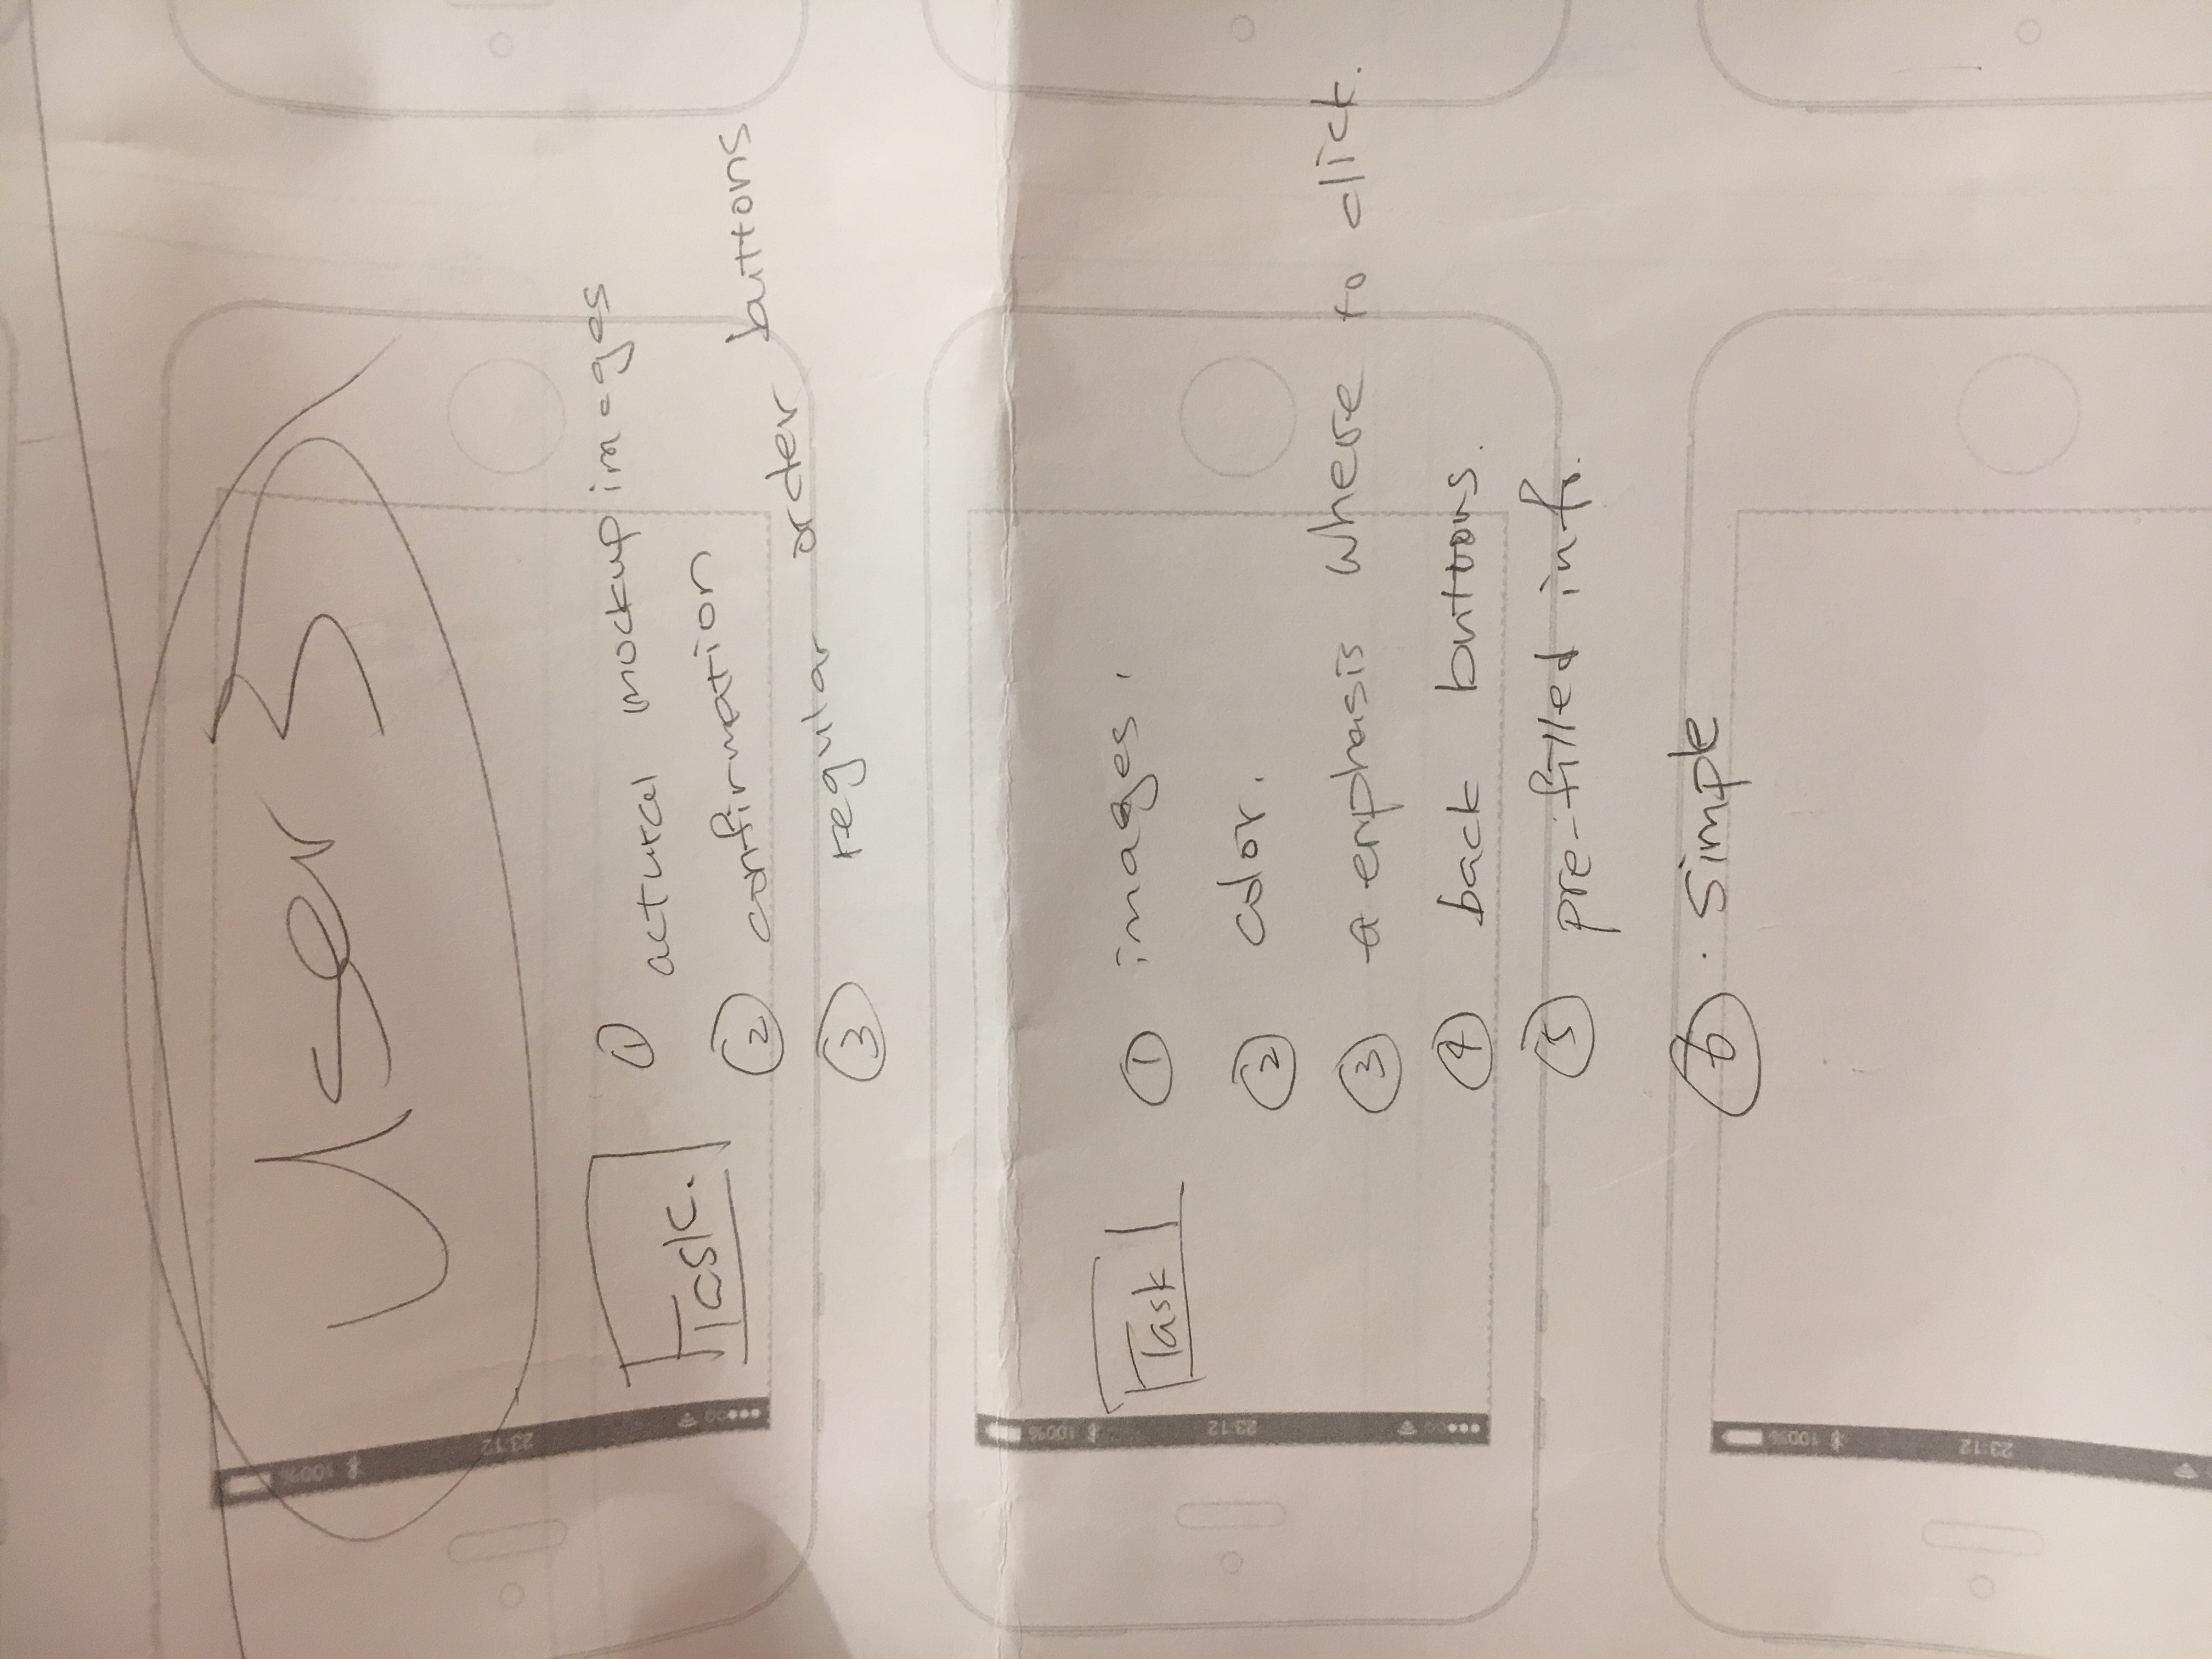 User 3
100%
23:12
Task.
① acturcal mockup images
② confirmation
③ regular order buttons
100%
23:12
Task
① images.
② color.
③ a enphasis where to click.
④ back buttons.
⑤ pre-filled info.
⑥ . simple
100%
23:12